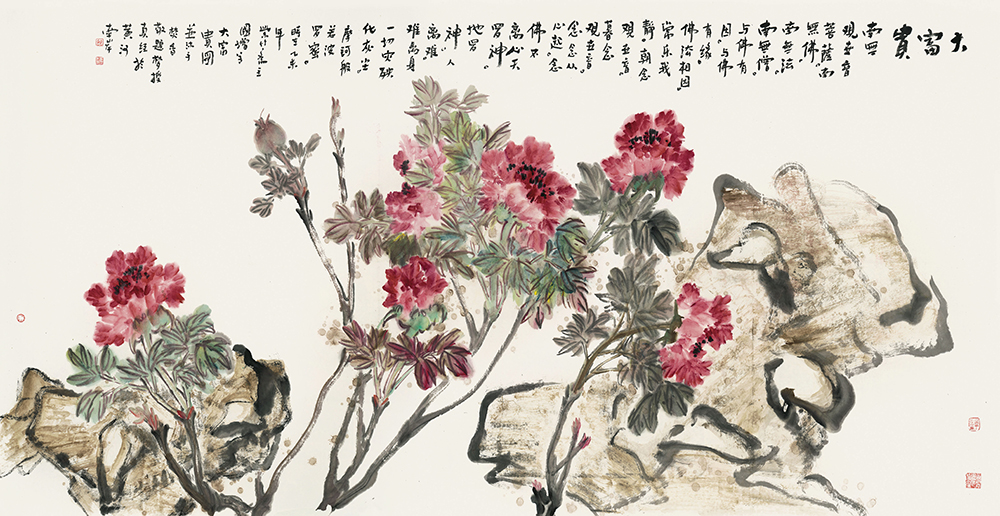 大富貴
南無
觀世音
菩薩南
無佛。
南無法
南無僧。
與佛有
因與佛
有緣。
佛法相因
常樂我
靜。朝念
觀世音
暮念
觀世音。
念念從
心起。念
佛不
離心。天
羅神。
地羅
神。人
離難。
難離身
一切災殃
化灰尘
摩訶般
若波
羅蜜。
時在乙未
年
大富
貴圖